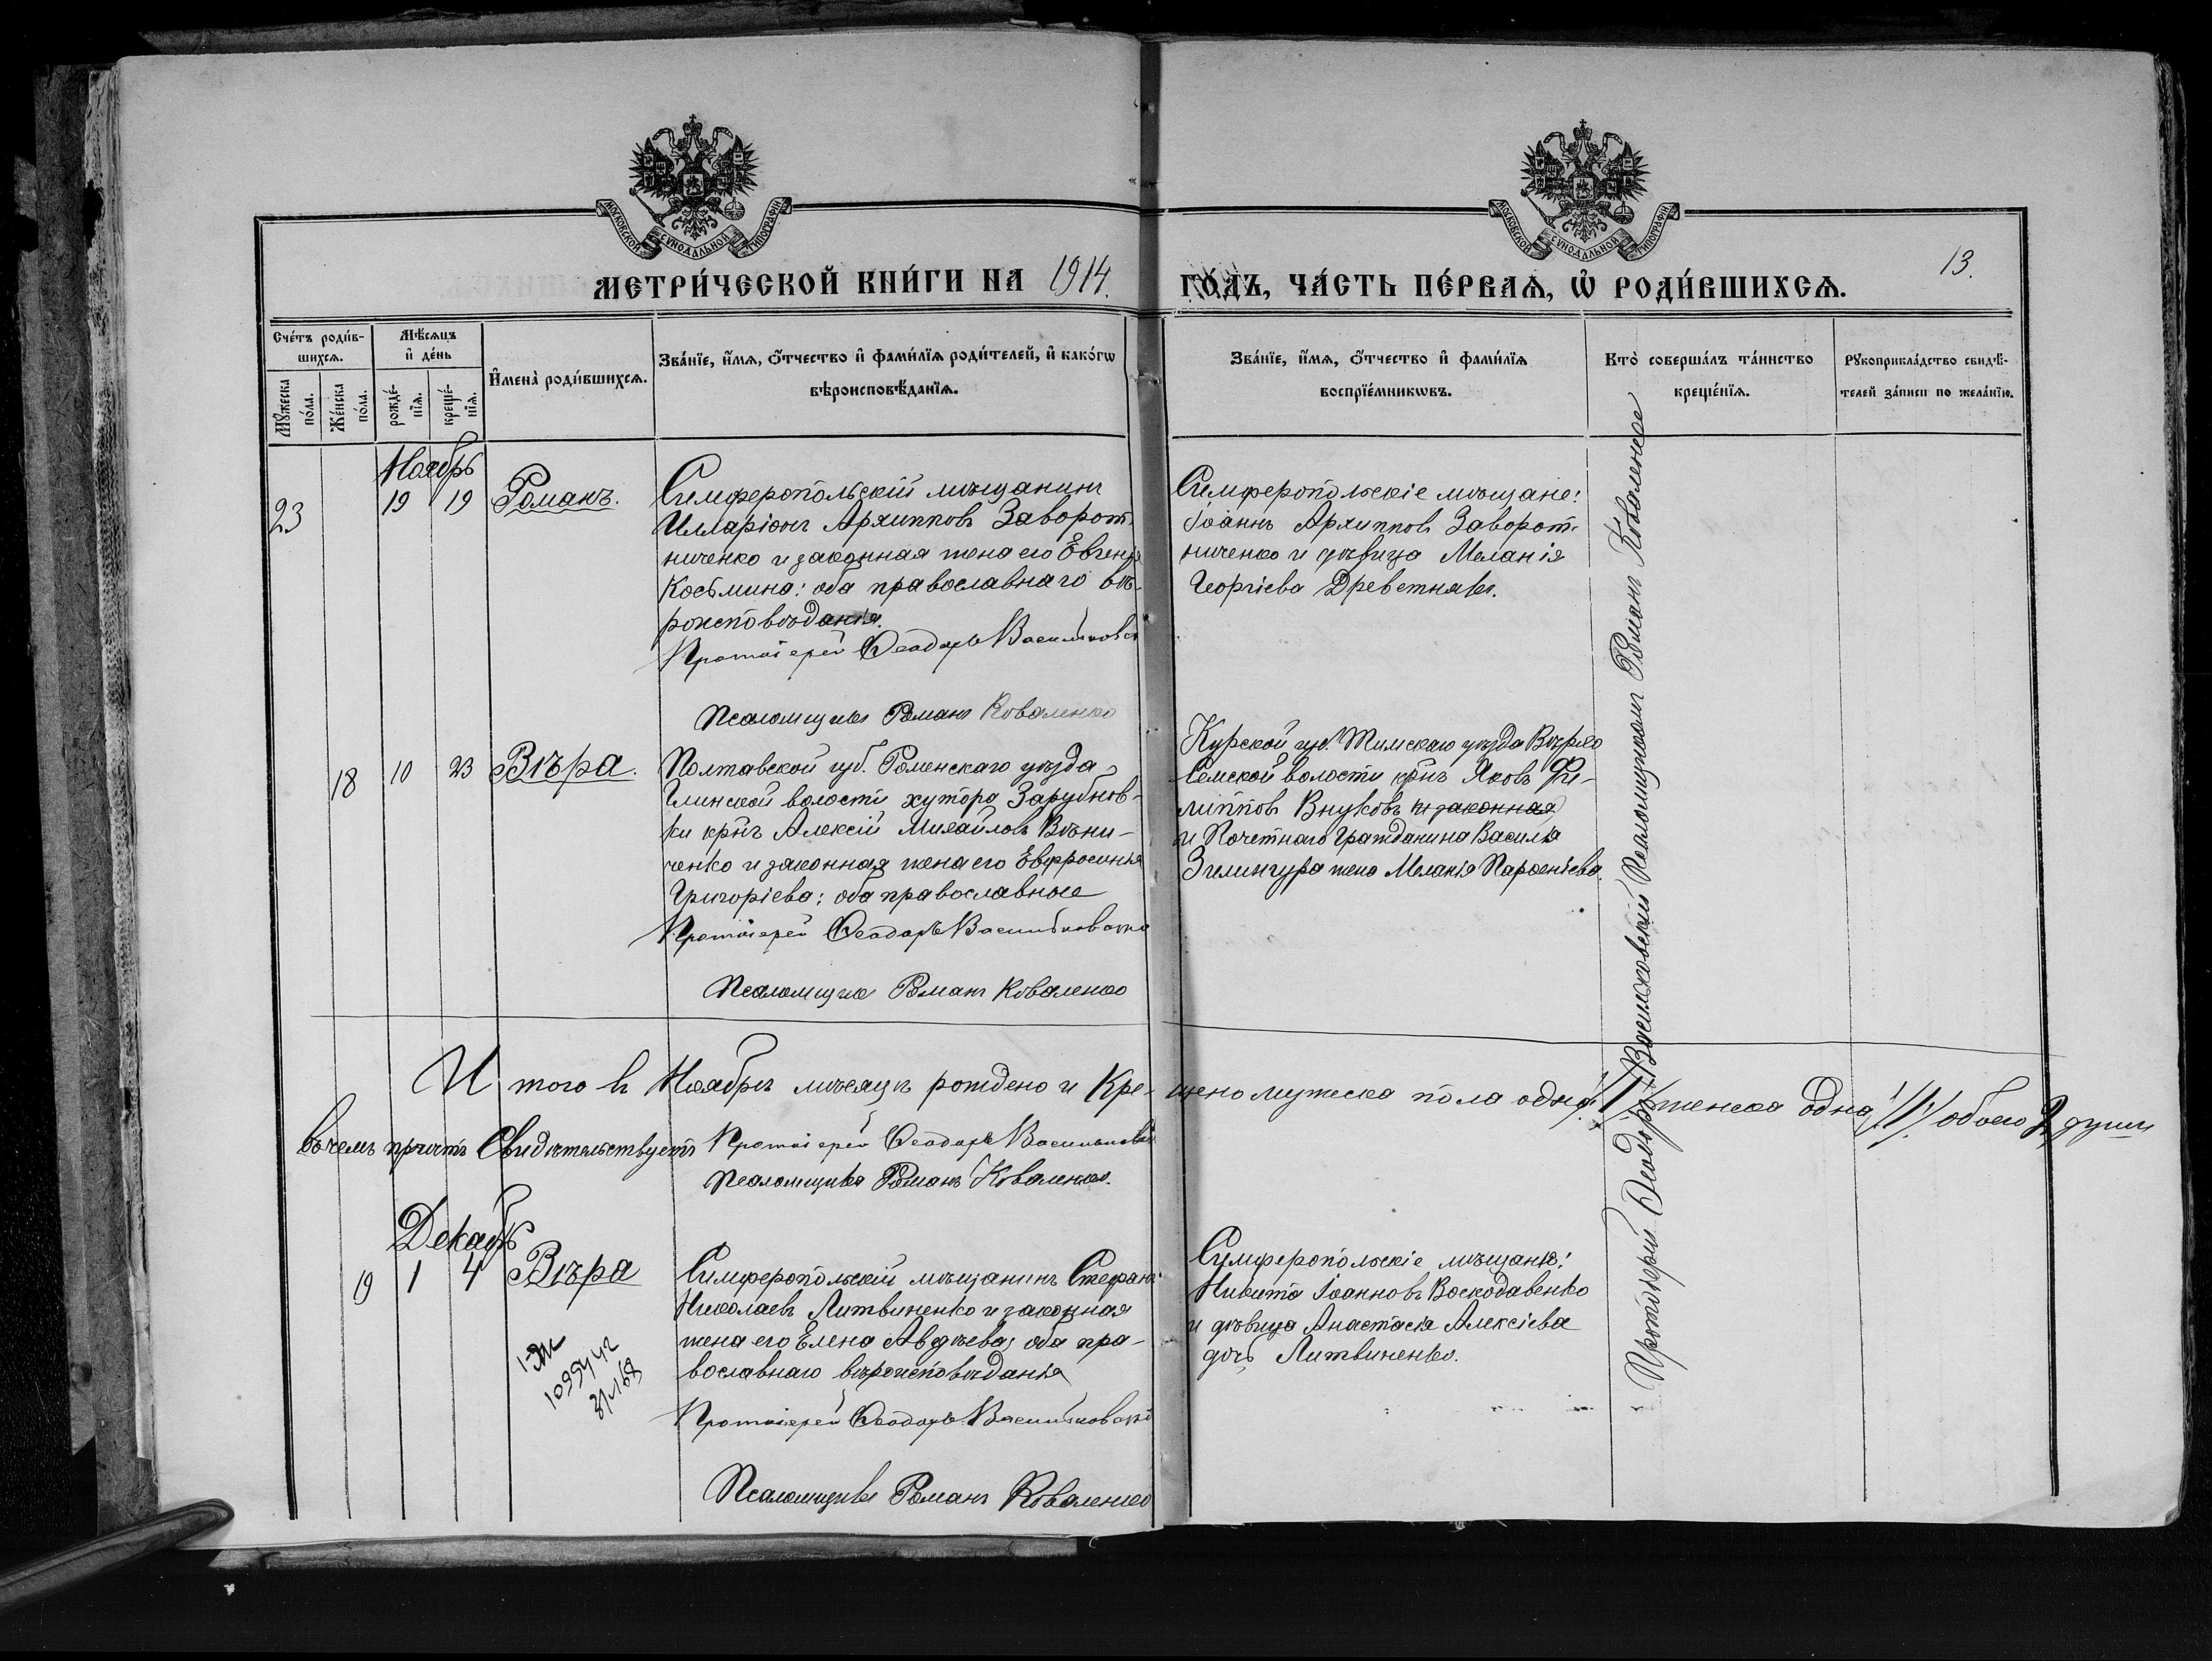 МОСКОВСКОЙ СѴНОДАЛЬНОЙ ТИПОГРАФІИ
МОСКОВСКОЙ СѴНОДАЛЬНОЙ ТИПОГРАФІИ
МЕТРИ́ЧЕСКОЙ КНИ́ГИ НА 1914. ГО́ДЪ, ЧА́СТЬ ПЕ́РВАѦ, Ѡ҆ РОДИ́ВШИХСѦ.
13.
Сче́тъ роди́в-
шихсѧ.
Мꙋ́жеска по́ла.
Же́нска по́ла.
Мѣ́сѧцъ
и҆ де́нь
рожде́-
нїѧ.
креще́-
нїѧ.
И҆мена̀ роди́вшихсѧ.
Зва́нїе, и҆́мѧ, ѻ҆́тчество и҆ фами́лїѧ роди́телей, и҆ како́гѡ
вѣроисповѣ́данїѧ.
Зва́нїе, и҆́мѧ, ѻ҆́тчество и҆ фами́лїѧ
воспрїе́мникѡвъ.
Кто̀ соверша́лъ та́инство
креще́нїѧ.
Рꙋкоприкла́дство свидѣ́-
телей за́писи по жела́нїю.
Ноябрь
23
19 19 Романъ.
Симферопольскій мѣщанинъ
Илларіонъ Архиповъ Заворот-
ниченко и законная жена его Евгенія
Косьмина: оба православнаго вѣ-
роисповѣданія.
Протоіерей Ѳеодоръ Васильковскій
Псаломщикъ Романъ Коваленко
Симферопольскіе мѣщане:
Іоаннъ Архиповъ Заворот-
ниченко и дѣвица Меланія
Георгіева
18 10 23 Вѣра.
Полтавской губ. Роменскаго уѣзда
Глинской волости хутора Зарубнов-
ки крнъ Алексій Михайловъ
ченко и законная жена его Евфросинія
Григоріева: оба православные
Протоіерей Ѳеодоръ Васильковскій
Псаломщикъ Романъ Коваленко
Курской губ. Тимскаго уѣзда Верхо
семской волости крнъ Яковъ Фи-
липповъ Внуковъ и законная
и Почетнаго Гражданина Василія
Зилингура жена Меланія Парѳеніева.
И того въ Ноябрѣ мѣсяцѣ рождено и Кре-щено мужеска пола одна /1/ женска одна /1/ обоего 2 души
въ чемъ причтъ Свидѣтельствуетъ Протоіерей Ѳеодоръ Васильковскій
Псаломщикъ Романъ Коваленко.
Декабрь
19 1 4 Вѣра
Симферопольскій мѣщанинъ Стефанъ
Николаевъ Литвиненко и законная
жена его Елена Авдѣева, оба пра-
вославнаго вѣроисповѣданія
Протоіерей Ѳеодоръ Васильковскій
Псаломщикъ Романъ Коваленко
Симферопольскіе мѣщане:
Никита Іоанновъ Воскодавенко
и дѣвица Анастасія Алексіева
дочь Литвиненко.
Протоіерей Ѳеодоръ Васильковскій Псаломщикъ Романъ Коваленко